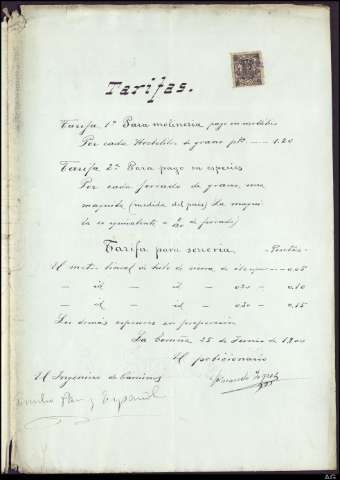 Tarifas.
Tarifa 1ª Para molinería pago en metálico
Por cada Hectolitro de grano pts — 1.20
Tarifa 2ª Para pago en especies
Por cada ferrado de grano, una
maquila (medida del pais) La maqui
la es equivalente a de ferrado)
Tarifa para serrería — Pesetas
El metro lineal de hilo de sierra de — 0,05
— id — id — 0,10
— id — id — 0,15
Los demás espesores en proporción
La Coruña 25 de de 1900
El peticionario
El Ingeniero de Caminos
Emilio y Español